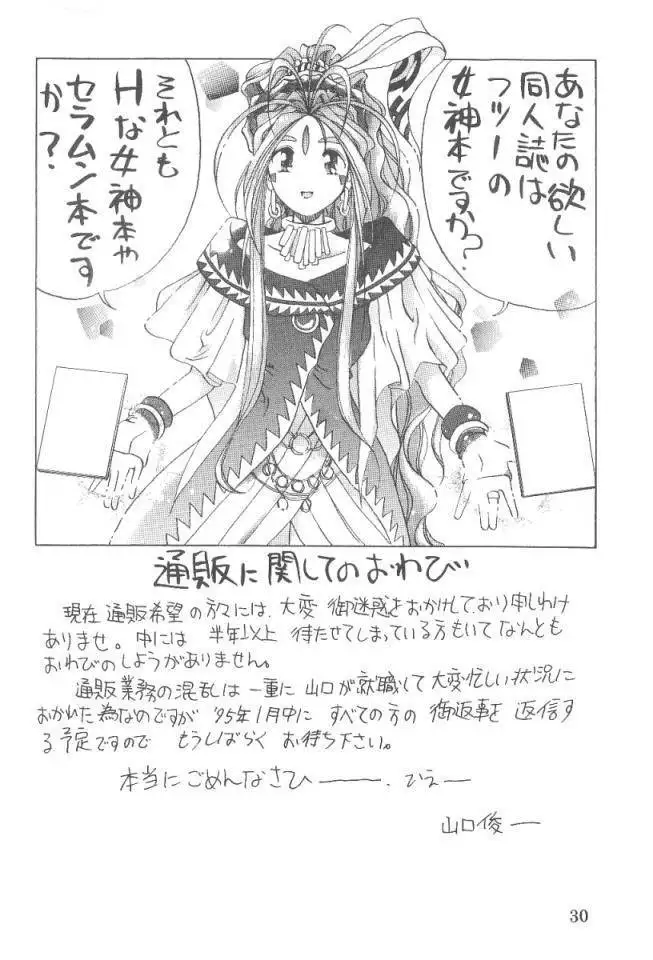 あなたの欲しい
同人誌は
フツーの
女神本ですか？
それとも
Hな女神本や
セラムン本です
か？
通販に関してのおわび
現在通販希望の方々には、大変 御迷惑をおかけしており申しわけ
ありませ。中には 半年以上 待たせてしまっている方もいてなんとも
おわびのしようがありません。
通販業務の混乱は一重に山口が就職して大変忙しい状況に
おかれた為なのですが '95年1月中に すべての方の 御返事を 返信す
る予定ですので もうしばらく お待ち下さい。
本当にごめんなさひ———.ひえ—
山口俊一
30